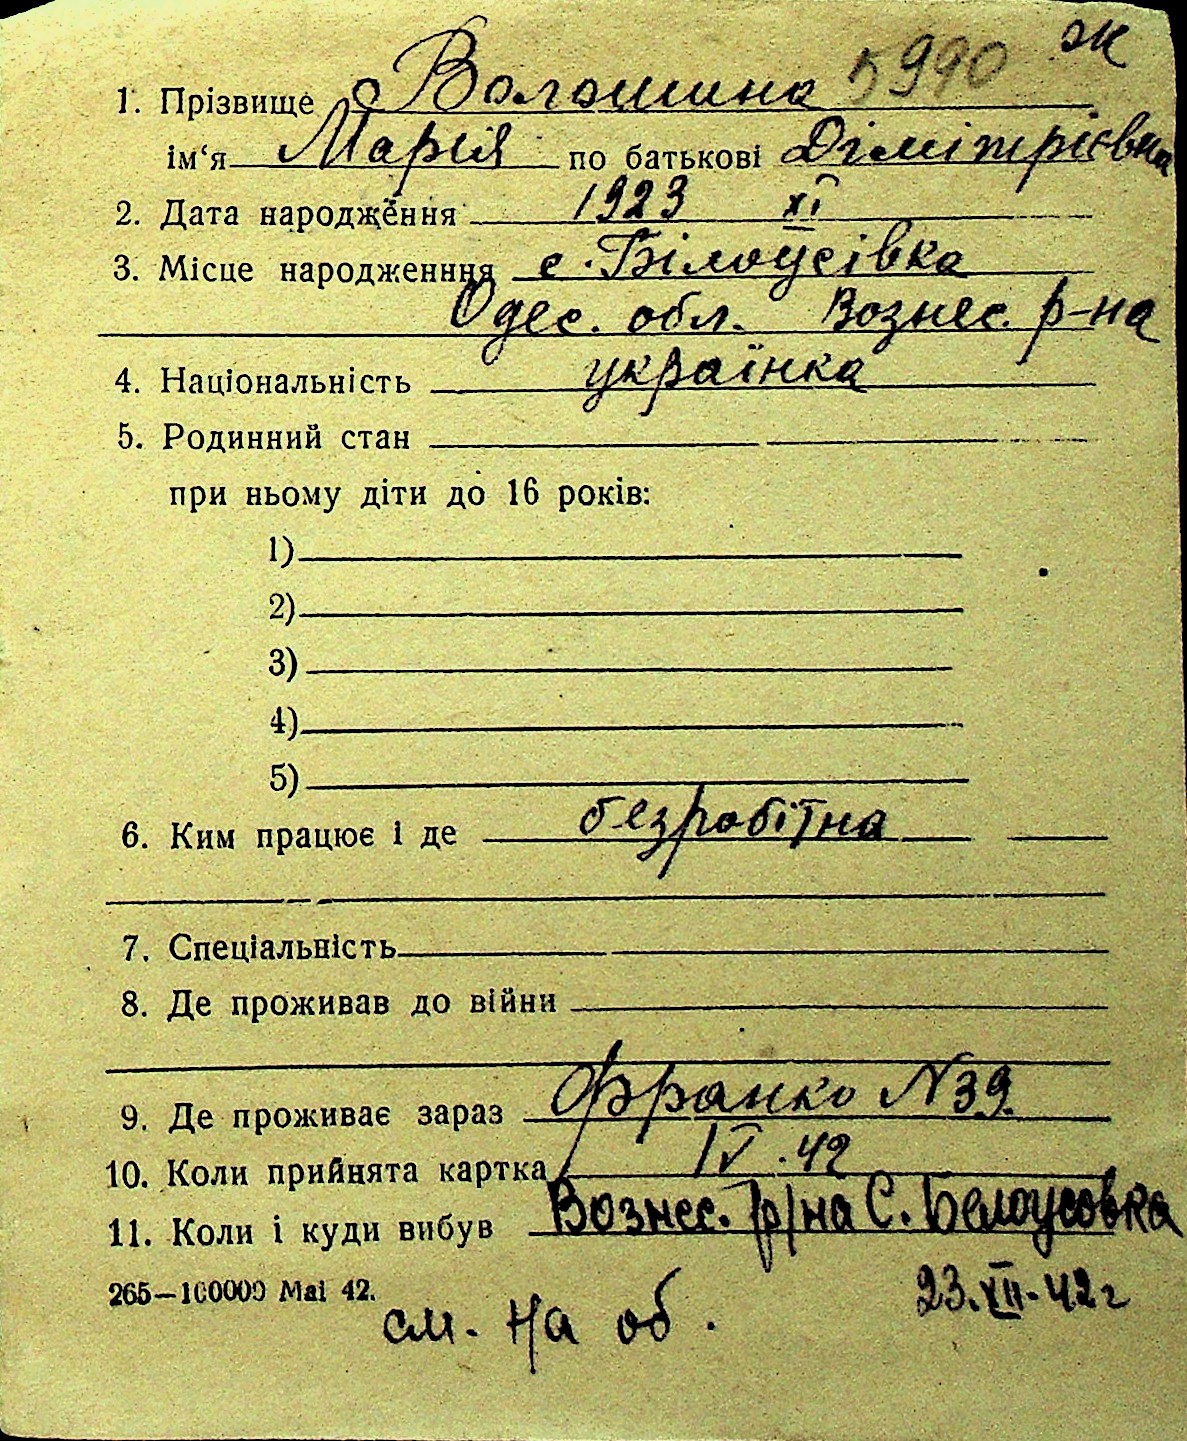 5990 ж
1. Прізвище Волошина
ім‘я Марія по батькові Дімітрієвна
2. Дата народження 1923 XI
3. Місце народженння с. Білоусівка
Одес. обл. Вознес. р-на
4. Національність українка
5. Родинний стан
при ньому діти до 16 років:
1)
2)
3)
4)
5)
6. Ким працює і де безробітна
7. Спеціальність
8. Де проживав до війни
9. Де проживає зараз Франко N 39.
10. Коли прийнята картка IV.42
11. Коли і куди вибув Вознес. р/на С. Белоусовка
265—100000 Mai 42. 23.XII.42 г
см. на об.